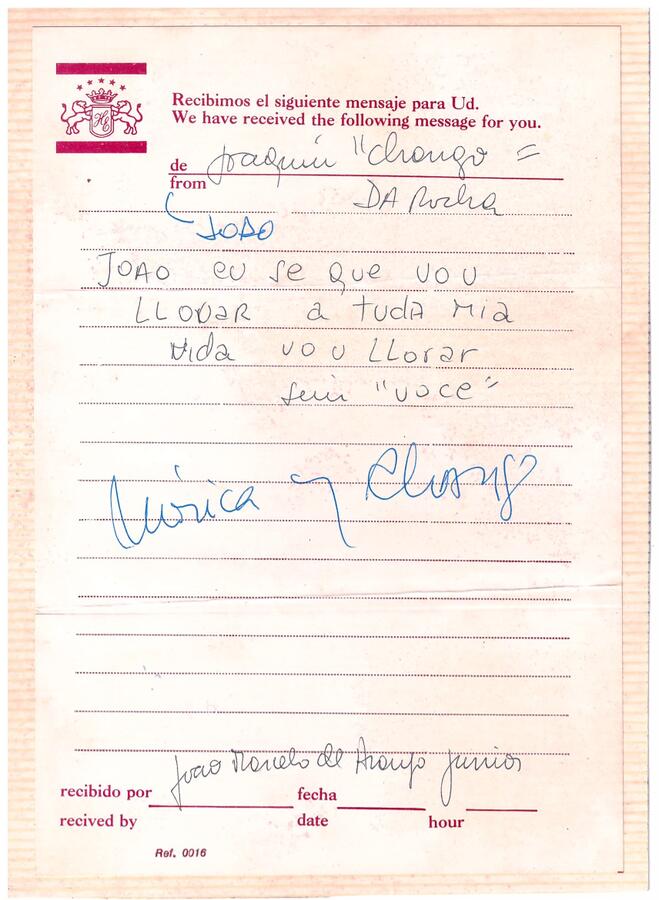 HE
Recibimos el siguiente mensaje para Ud.
We have received the following message for you.
de Joaquin "Chango"
from
DA Rocha
JOAO
JOAO EU SE QUE VOU
LLORAR A TUDA MIA
VIDA VOU LLORAR
sem "VOCE"
Mónica y Chango
Joao Marcelo de Araujo Junior
recibido por fecha
recived by date hour
Ref. 0016